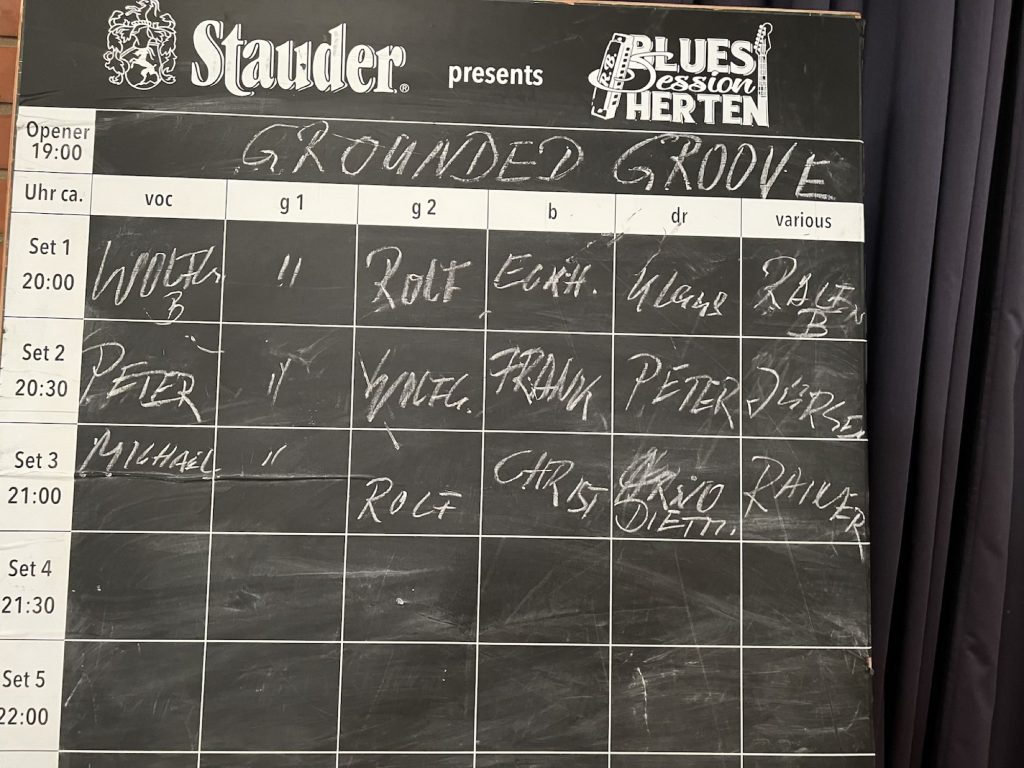 Stauder® presents BLUES Session HERTEN
Opener 19:00 GROUNDED GROOVE
Uhr ca. voc g 1 g 2 b dr various
Set 1 20:00 WOLFG. B " ROLF ECKH. Klaus RALF B
Set 2 20:30 PETER " WOLFG. FRANK PETER JÜRGEN
Set 3 21:00 MICHAEL " ROLF CHRIST ARNO DIETM. RAINER
Set 4 21:30
Set 5 22:00